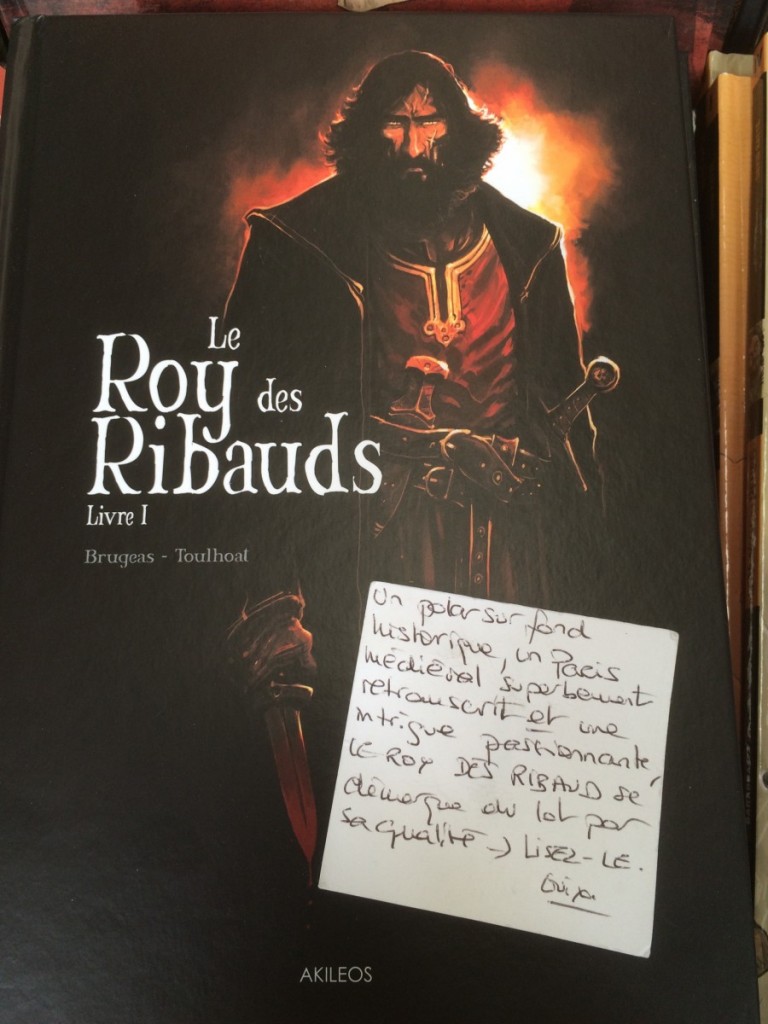 Le
Roy des
Ribauds
Livre I
Brugeas - Toulhoat
Un polar sur fond
historique, un Paris
médiéval superbement
retranscrit et une
intrigue passionnante,
LE ROY DES RIBAUD se
démarque du lot par
sa qualité → LISEZ-LE.
AKILEOS